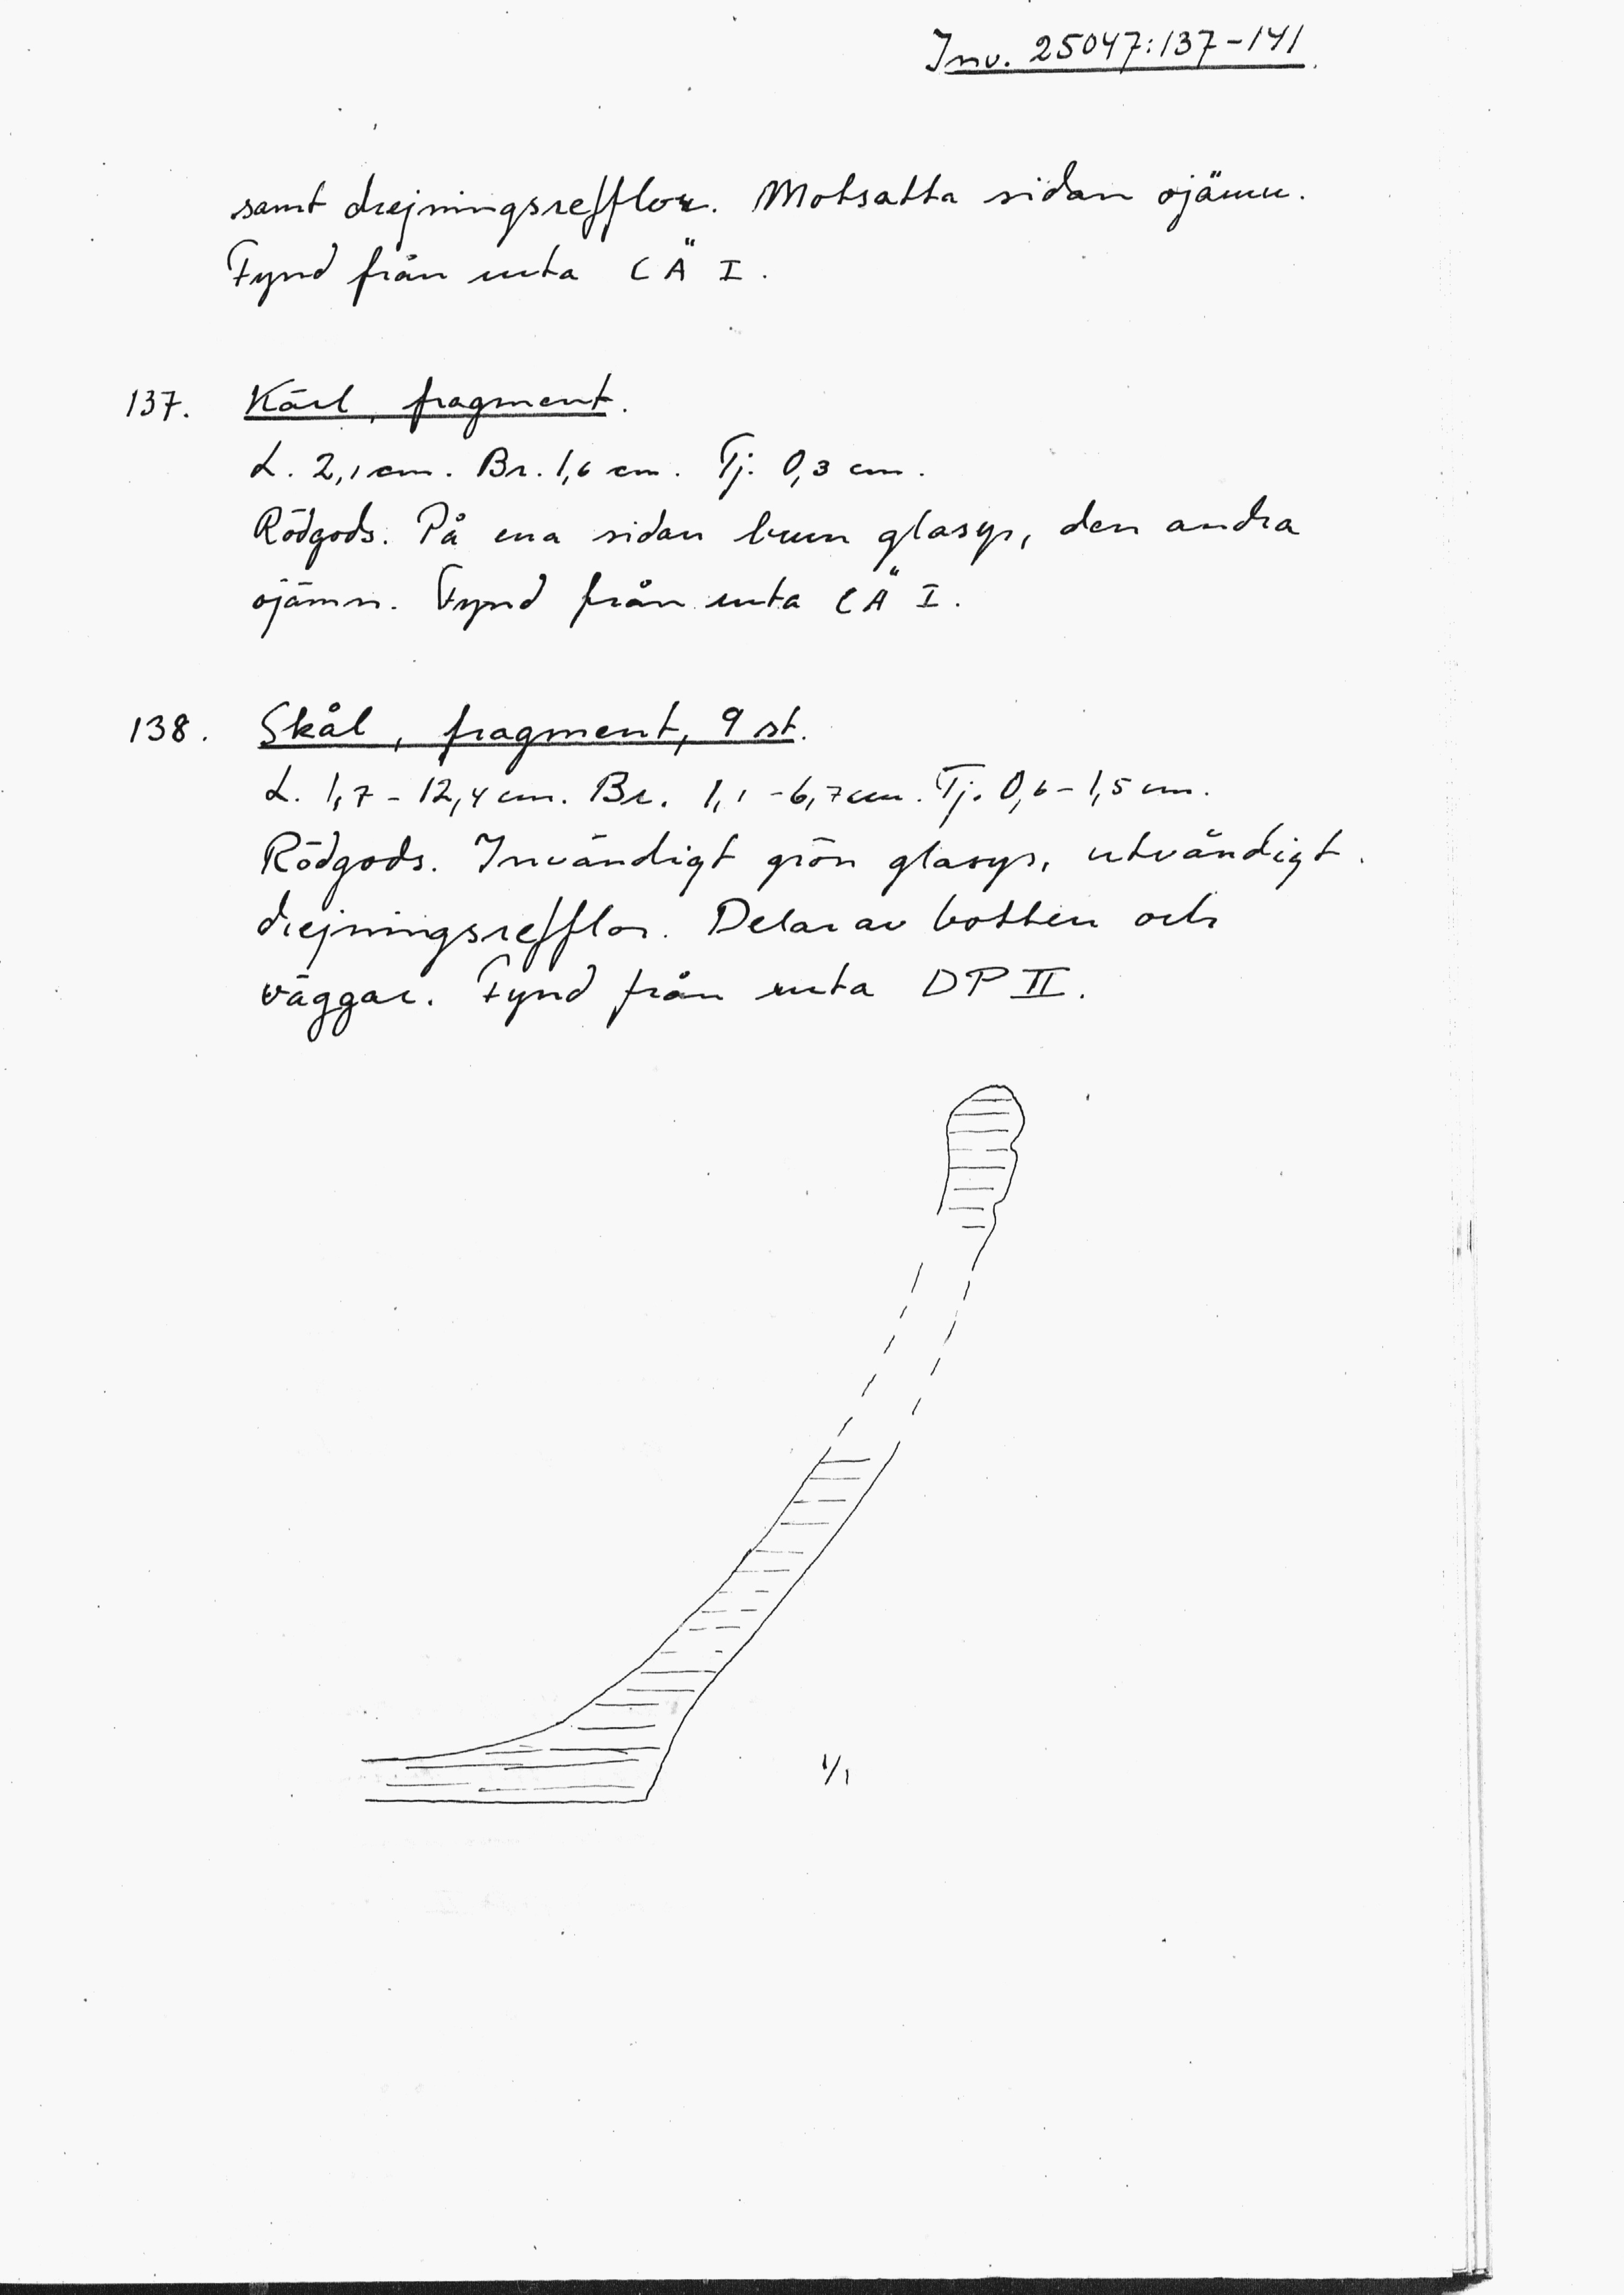 Inv. 25047:137-141
samt drejningsrefflor. Motsatta sidan ojämn.
Fynd från ruta CÄ I.
137. Kärl, fragment.
L. 2,1 cm. Br. 1,6 cm. Tj. 0,3 cm.
Rödgods. På ena sidan brun glasyr, den andra
ojämn. Fynd från ruta CÄ I.
138. Skål, fragment, 9 st.
L. 1,7 - 12,4 cm. Br. 1,1 - 6,7 cm. Tj. 0,6 - 1,5 cm.
Rödgods. Invändigt grön glasyr, utvändigt
drejningsrefflor. Delar av botten och
väggar. Fynd från ruta DP II.
1/1